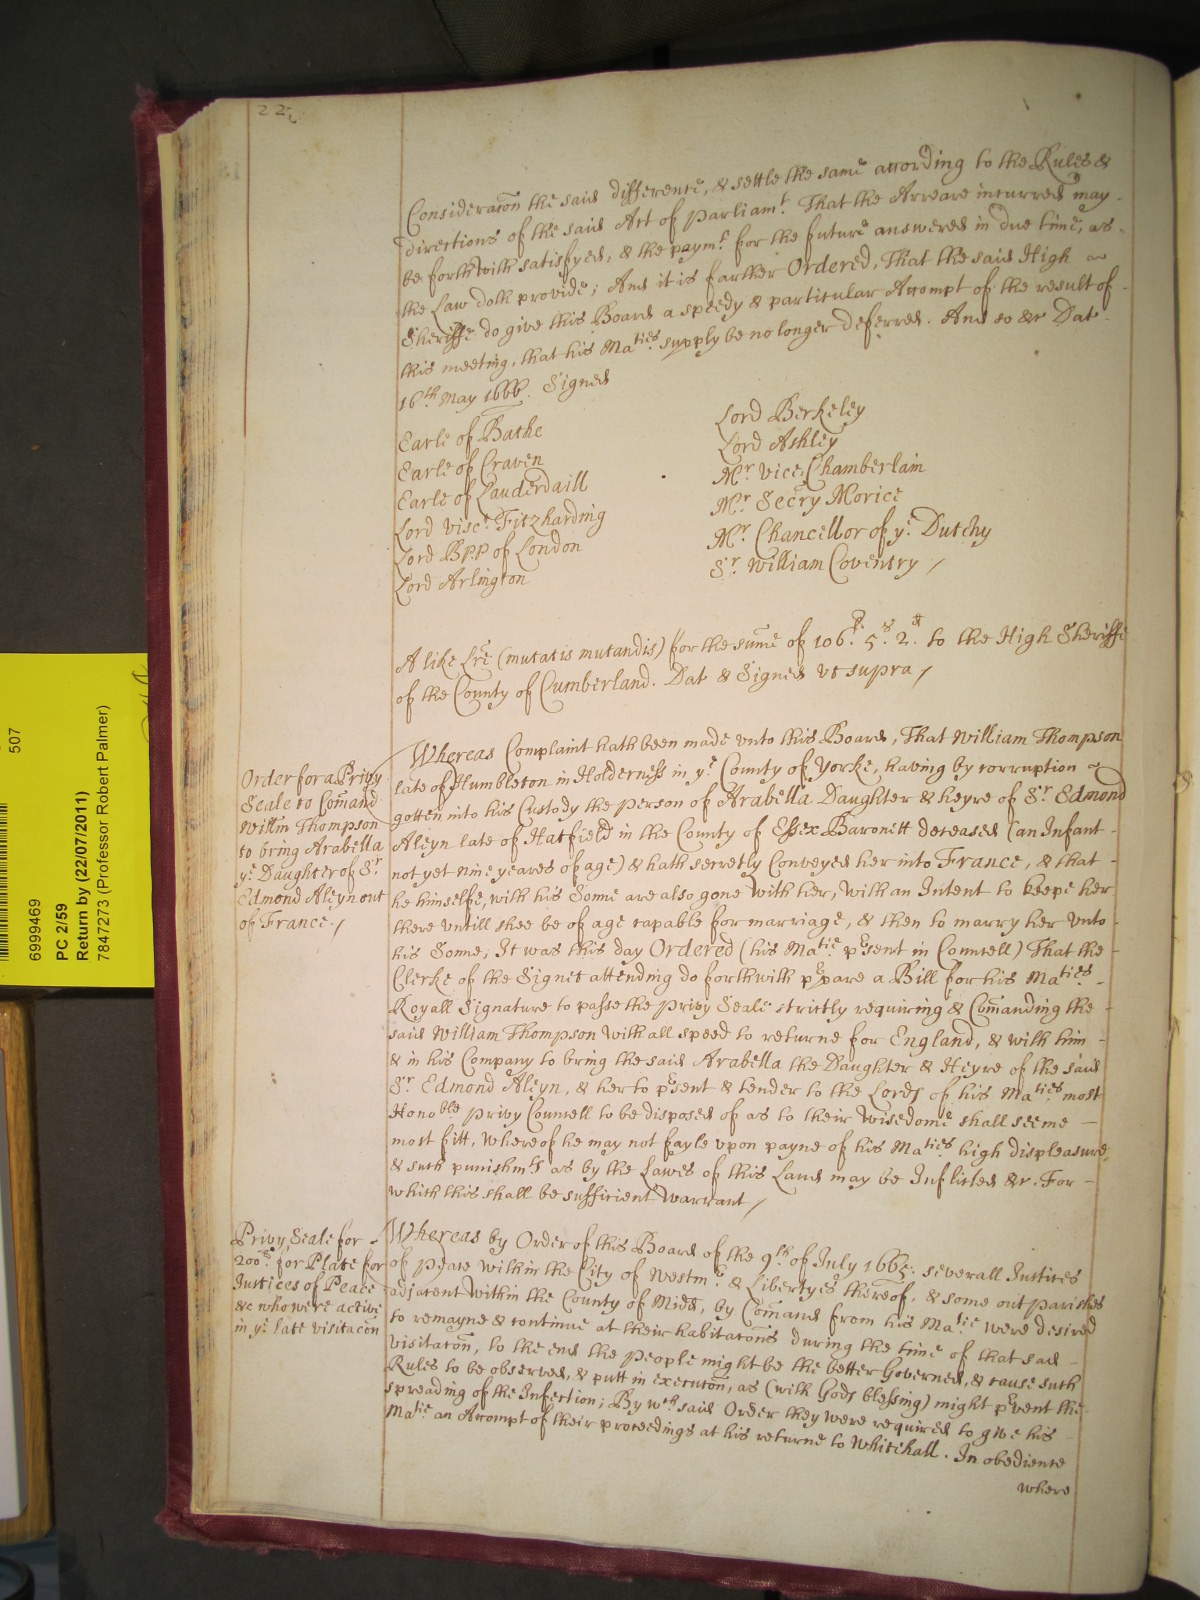 22
Consideracōn the said difference, & settle the same according to the Rules &
directions of the said Act of Parliamt. That the Arreare incurred may
be forthwith satisfyed, & the paymt. for the future answered in due time, as
the Law doth provide; And it is farther Ordered, That the said High
Sheriffe do give this Board a speedy & particular Accompt of the result of
this meeting, that his Maties supply be no longer deferred. And so &c Dat
16th May 1666. Signed
Earle of Bathe
Earle of Craven
Earle of Lauderdaill
Lord Visct. Fitzharding
Lord Bpp of London
Lord Arlington
Lord Berkeley
Lord Ashley
Mr. Vice Chamberlain
Mr. Secry Morice
Mr. Chancellor of ye. Dutchy
Sr. William Coventry /
A like Lre (mutatis mutandis) for the sume of 106l. 5s. 2d. to the High Sheriffe
of the County of Cumberland. Dat & Signed vt supra /
Order for a Privy
Seale to Comand
Willm Thompson
to bring Arabella
ye. Daughter of Sr.
Edmond Aleyn out
of France. /
Whereas Complaint hath been made vnto this Board, That William Thompson
late of Humbleton in Holderness in ye. County of Yorke, having by corruption
gotten into his Custody the person of Arabella Daughter & heyre of Sr. Edmond
Aleyn late of Hatfield in the County of Essex Baronett deceased (an Infant
not yet nine yeares of age) & hath secretly Conveyed her into France, & that
he himselfe, with his Sonne are also gone with her, with an Intent to keepe her
there untill shee be of age capable for marriage, & then to marry her vnto
his Sonne, It was this day Ordered (his Matie. present in Councell) That the
Clerke of the Signet attending do forthwith prepare a Bill for his Maties
Royall Signature to passe the privy Seale strictly requiring & Comanding the
said William Thompson with all speed to returne for England, & with him
& in his Company to bring the said Arabella the Daughter & Heyre of the said
Sr. Edmond Aleyn, & her to present & tender to the Lords of his Maties most
Honoble privy Councell to be disposed of as to their wisedome shall seeme
most fitt, whereof he may not fayle vpon payne of his Maties high displeasure,
& such punishmts as by the Lawes of this Land may be Inflicted &c. For
which this shall be sufficient warrant /
Privy Seale for
200l. for Plate for
Justices of Peace
&c who were active
in ye. late visitacōn
Whereas by Order of this Board of the 9th. of July 1665: severall Justices
of peace within the City of Westmr. & Libertyes thereof, & some out parishes
adjacent within the County of Midd, by Comand from his Matie were desired
to remayne & continue at their habitacōns during the time of that sad
visitacōn, to the end the people might be the better Governed, & cause such
Rules to be observed, & putt in execucōn, as (with Gods blessing) might prevent the
spreading of the Infection; By wch. said Order they were required to give his
Matie an Accompt of their proceedings at his returne to Whitehall. In obedience
where
6999469
507
PC 2/59
Return by (22/07/2011)
7847273 (Professor Robert Palmer)